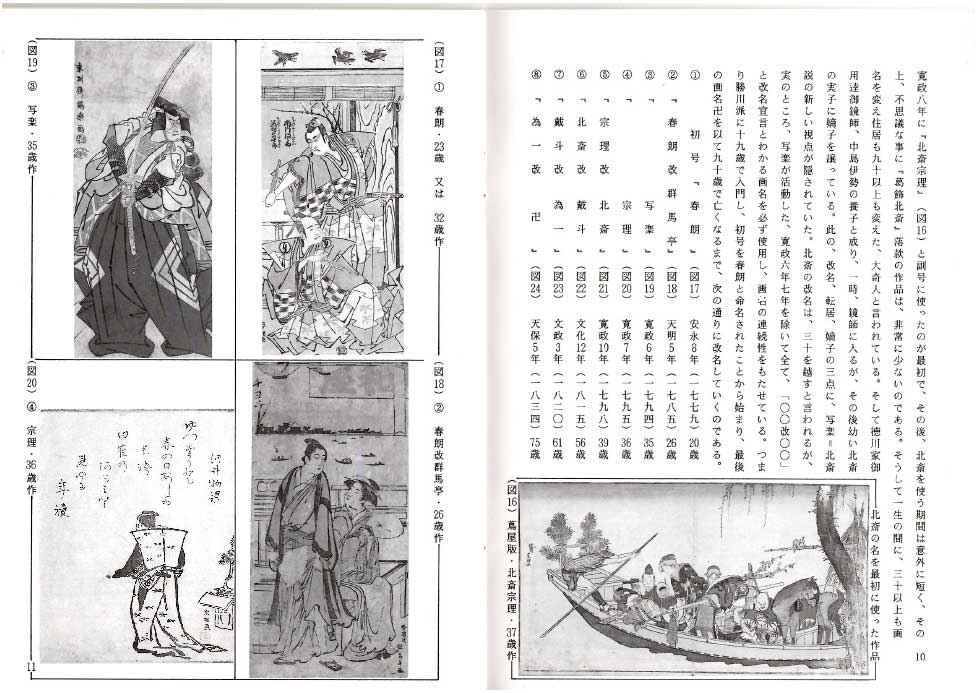 寛政八年に『北斎宗理』(図16)と副号に使ったのが最初で、その後、北斎を使う期間は意外に短く、その
上、不思議な事に『葛飾北斎』落款の作品は、非常に少ないのである。そうして一生の間に、三十以上も画
名を変え住居も九十以上も変えた、大奇人と言われている。そして徳川家御
用達御鏡師、中島伊勢の養子と成り、一時、鏡師に入るが、その後幼い北斎
の実子に嫡子を譲っている。此の、改名、転居、嫡子の三点に、写楽=北斎
説の新しい視点が隠されていた。北斎の改名は、三十を越すと言われるが、
実のところ、写楽が活動した、寛政六年七年を除いて全て、「〇〇改〇〇」
と改名宣言とわかる画名を必ず使用し、画名の連続性をもたせている。つま
り勝川派に十九歳で入門し、初号を春朗と命名されたことから始まり、最後
の画名卍を以て九十歳で亡くなるまで、次の通りに改名していくのである。
① 初号『春朗』(図17) 安永8年(一七七九)20歳
② 『春朗改群馬亭』(図18) 天明5年(一七八五)26歳
③ 『写楽』(図19) 寛政6年(一七九四)35歳
④ 『宗理』(図20) 寛政7年(一七九五)36歳
⑤ 『宗理改北斎』(図21) 寛政10年(一七九八)39歳
⑥ 『北斎改戴斗』(図22) 文化12年(一八一五)56歳
⑦ 『戴斗改為一』(図23) 文政3年(一八二〇)61歳
⑧ 『為一改卍』(図24) 天保5年(一八三四)75歳
北斎の名を最初に使った作品
(図16) 蔦屋版・北斎宗理・37歳作
10
(図17) ① 春朗・23歳 又は 32歳作
(図18) ② 春朗改群馬亭・26歳作
(図19) ③ 写楽・35歳作
(図20) ④ 宗理・36歳作
11